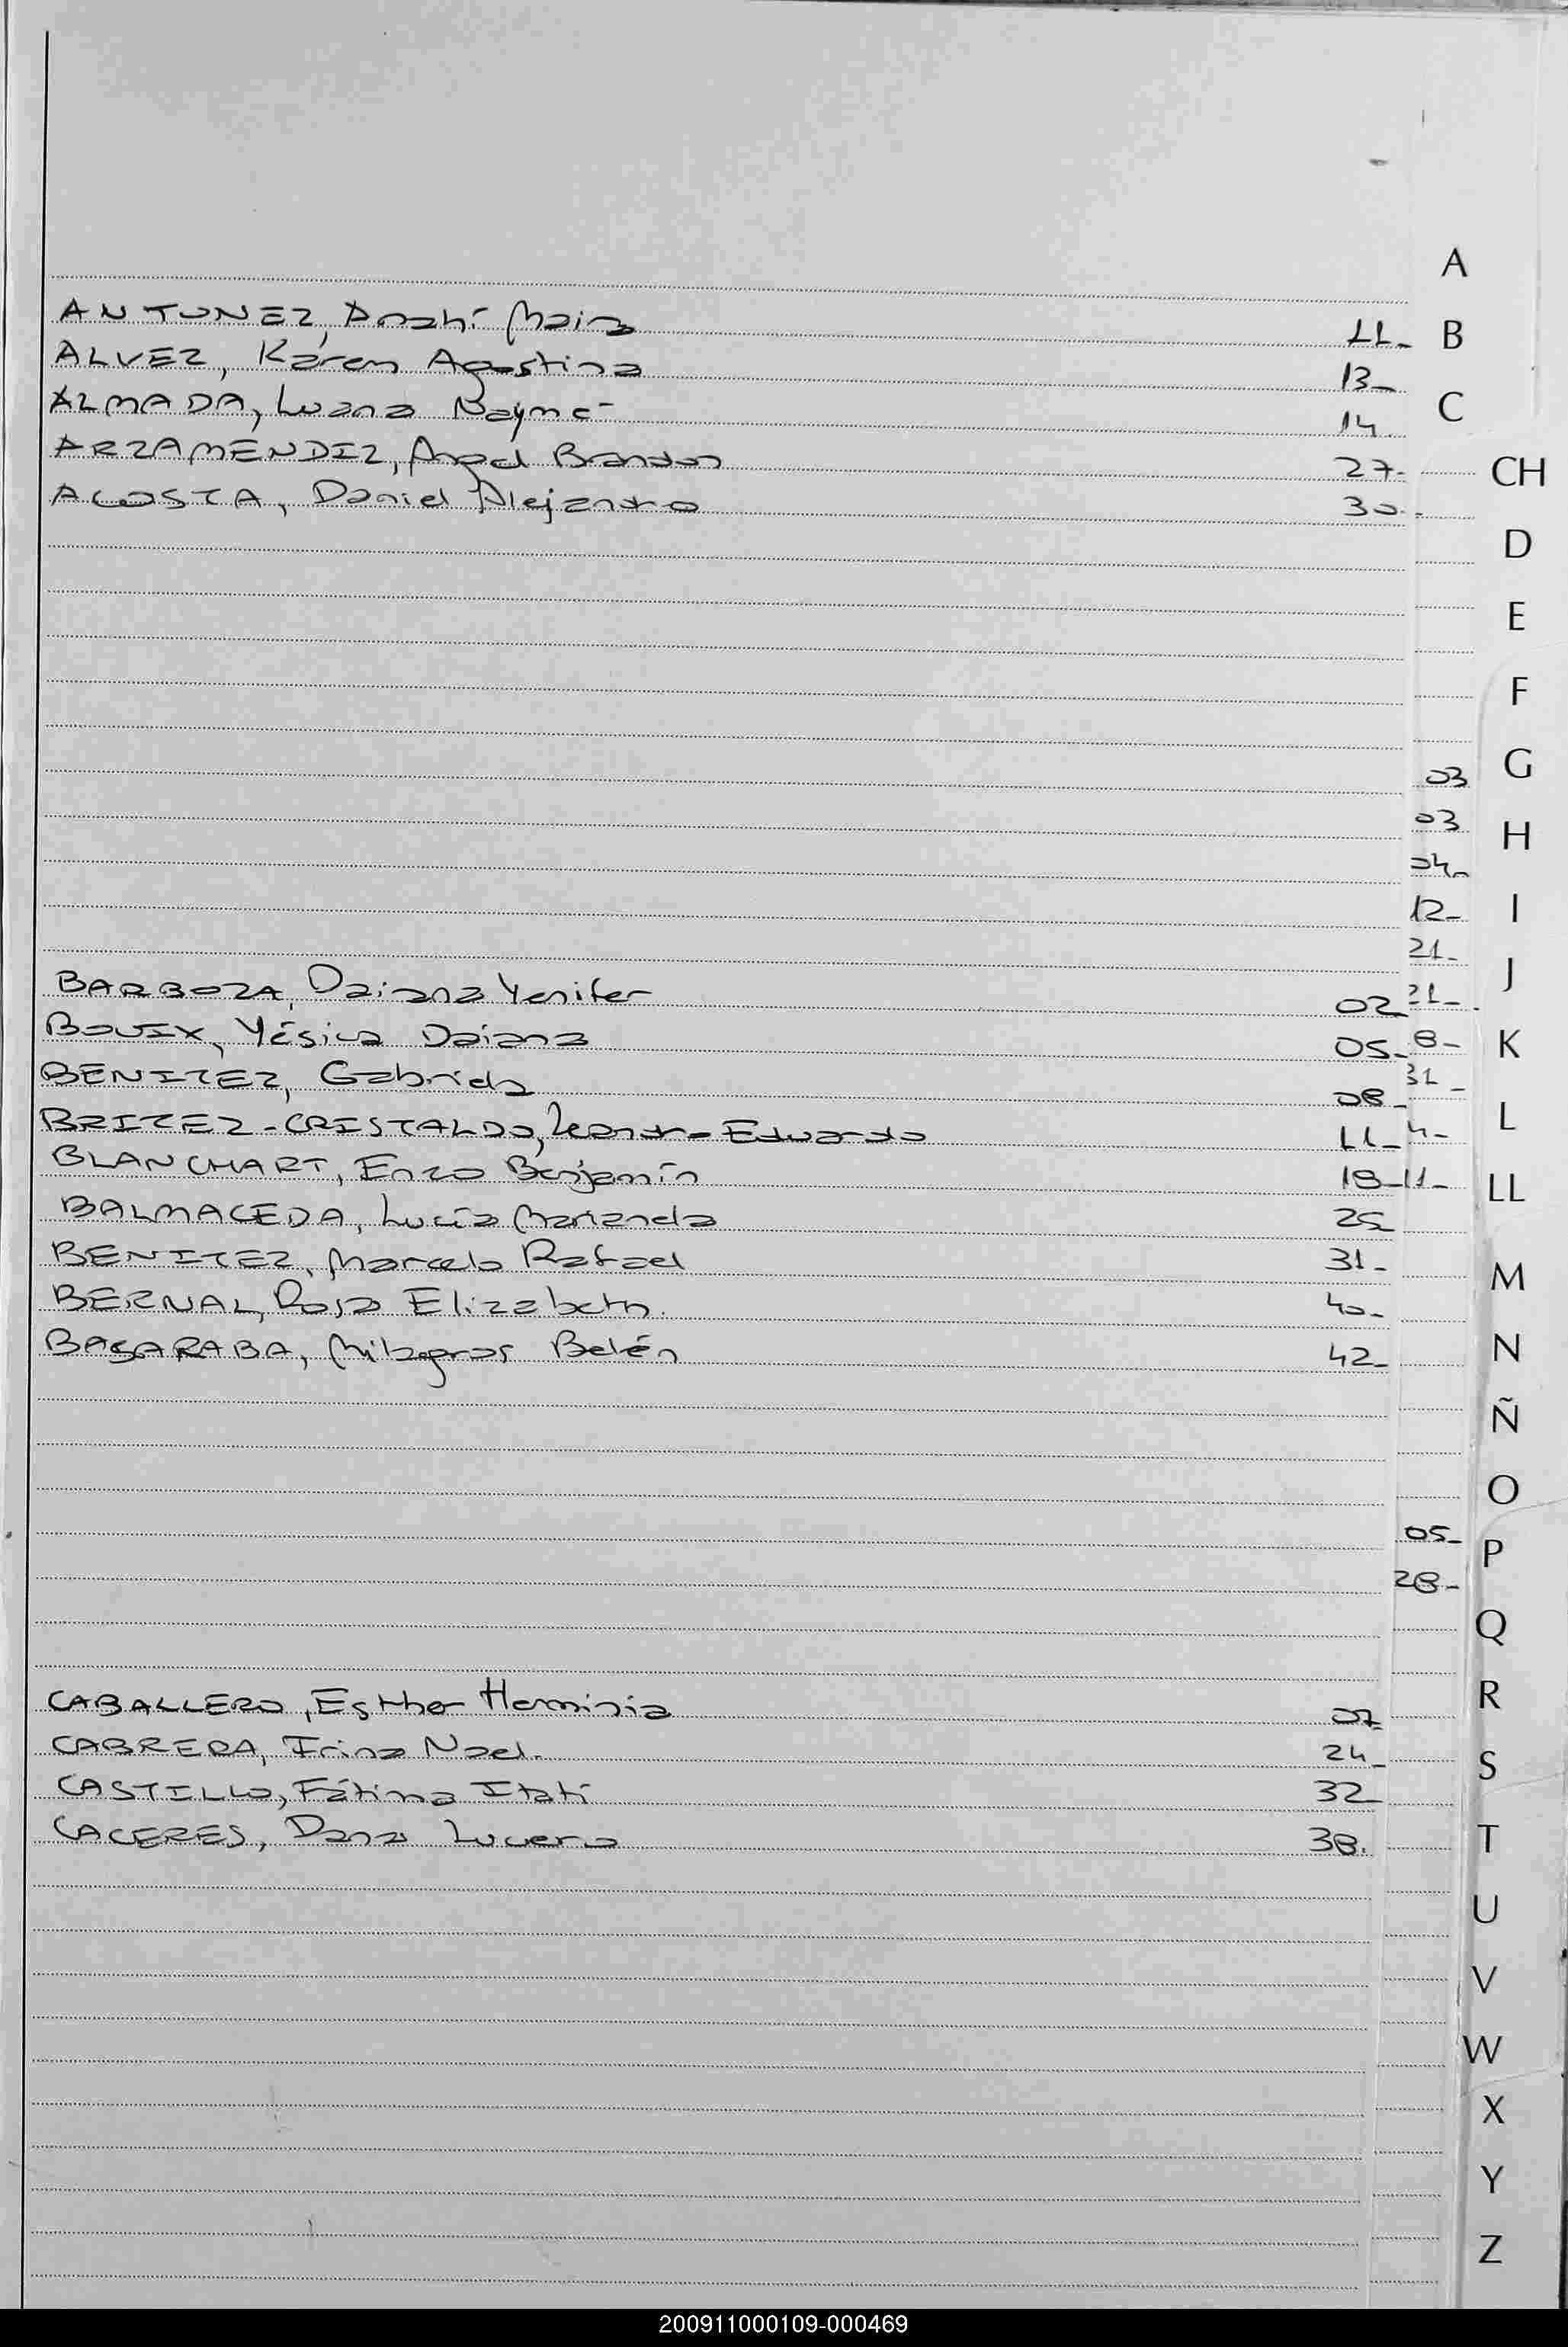 A
ANTUNEZ, Anahí Maia 11- B
ALVEZ, Karen Agostina 13-
C
ALMADA, Luana Naymé 14
ARZAMENDIZ, Angel Brandon 27- CH
ACOSTA, Daniel Alejandro 30-
D
E
F
03 G
03 H
04-
12- I
21-
J
BARBOZA, Daiana Yenifer 02 21-
BOUIX, Yésica Daiana 05- 8- K
BENITEZ, Gabriela 08- 31-
L
BRITEZ-CRISTALDO, Leandro Eduardo 11- 4-
BLANCHART, Enzo Benjamín 18- 11- LL
BALMACEDA, Lucía Marianela 25-
BENITEZ, Marcelo Rafael 31- M
BERNAL, Rosa Elizabeth. 40-
BASARABA, Milagros Belén 42- N
Ñ
O
05- P
28-
Q
R
CABALLERO, Esther Herminia 07-
CABRERA, Irina Nael. 24- S
CASTILLO, Fátima Itatí 32-
CACERES, Dana Lucero 38. T
U
V
W
X
Y
Z
200911000109-000469